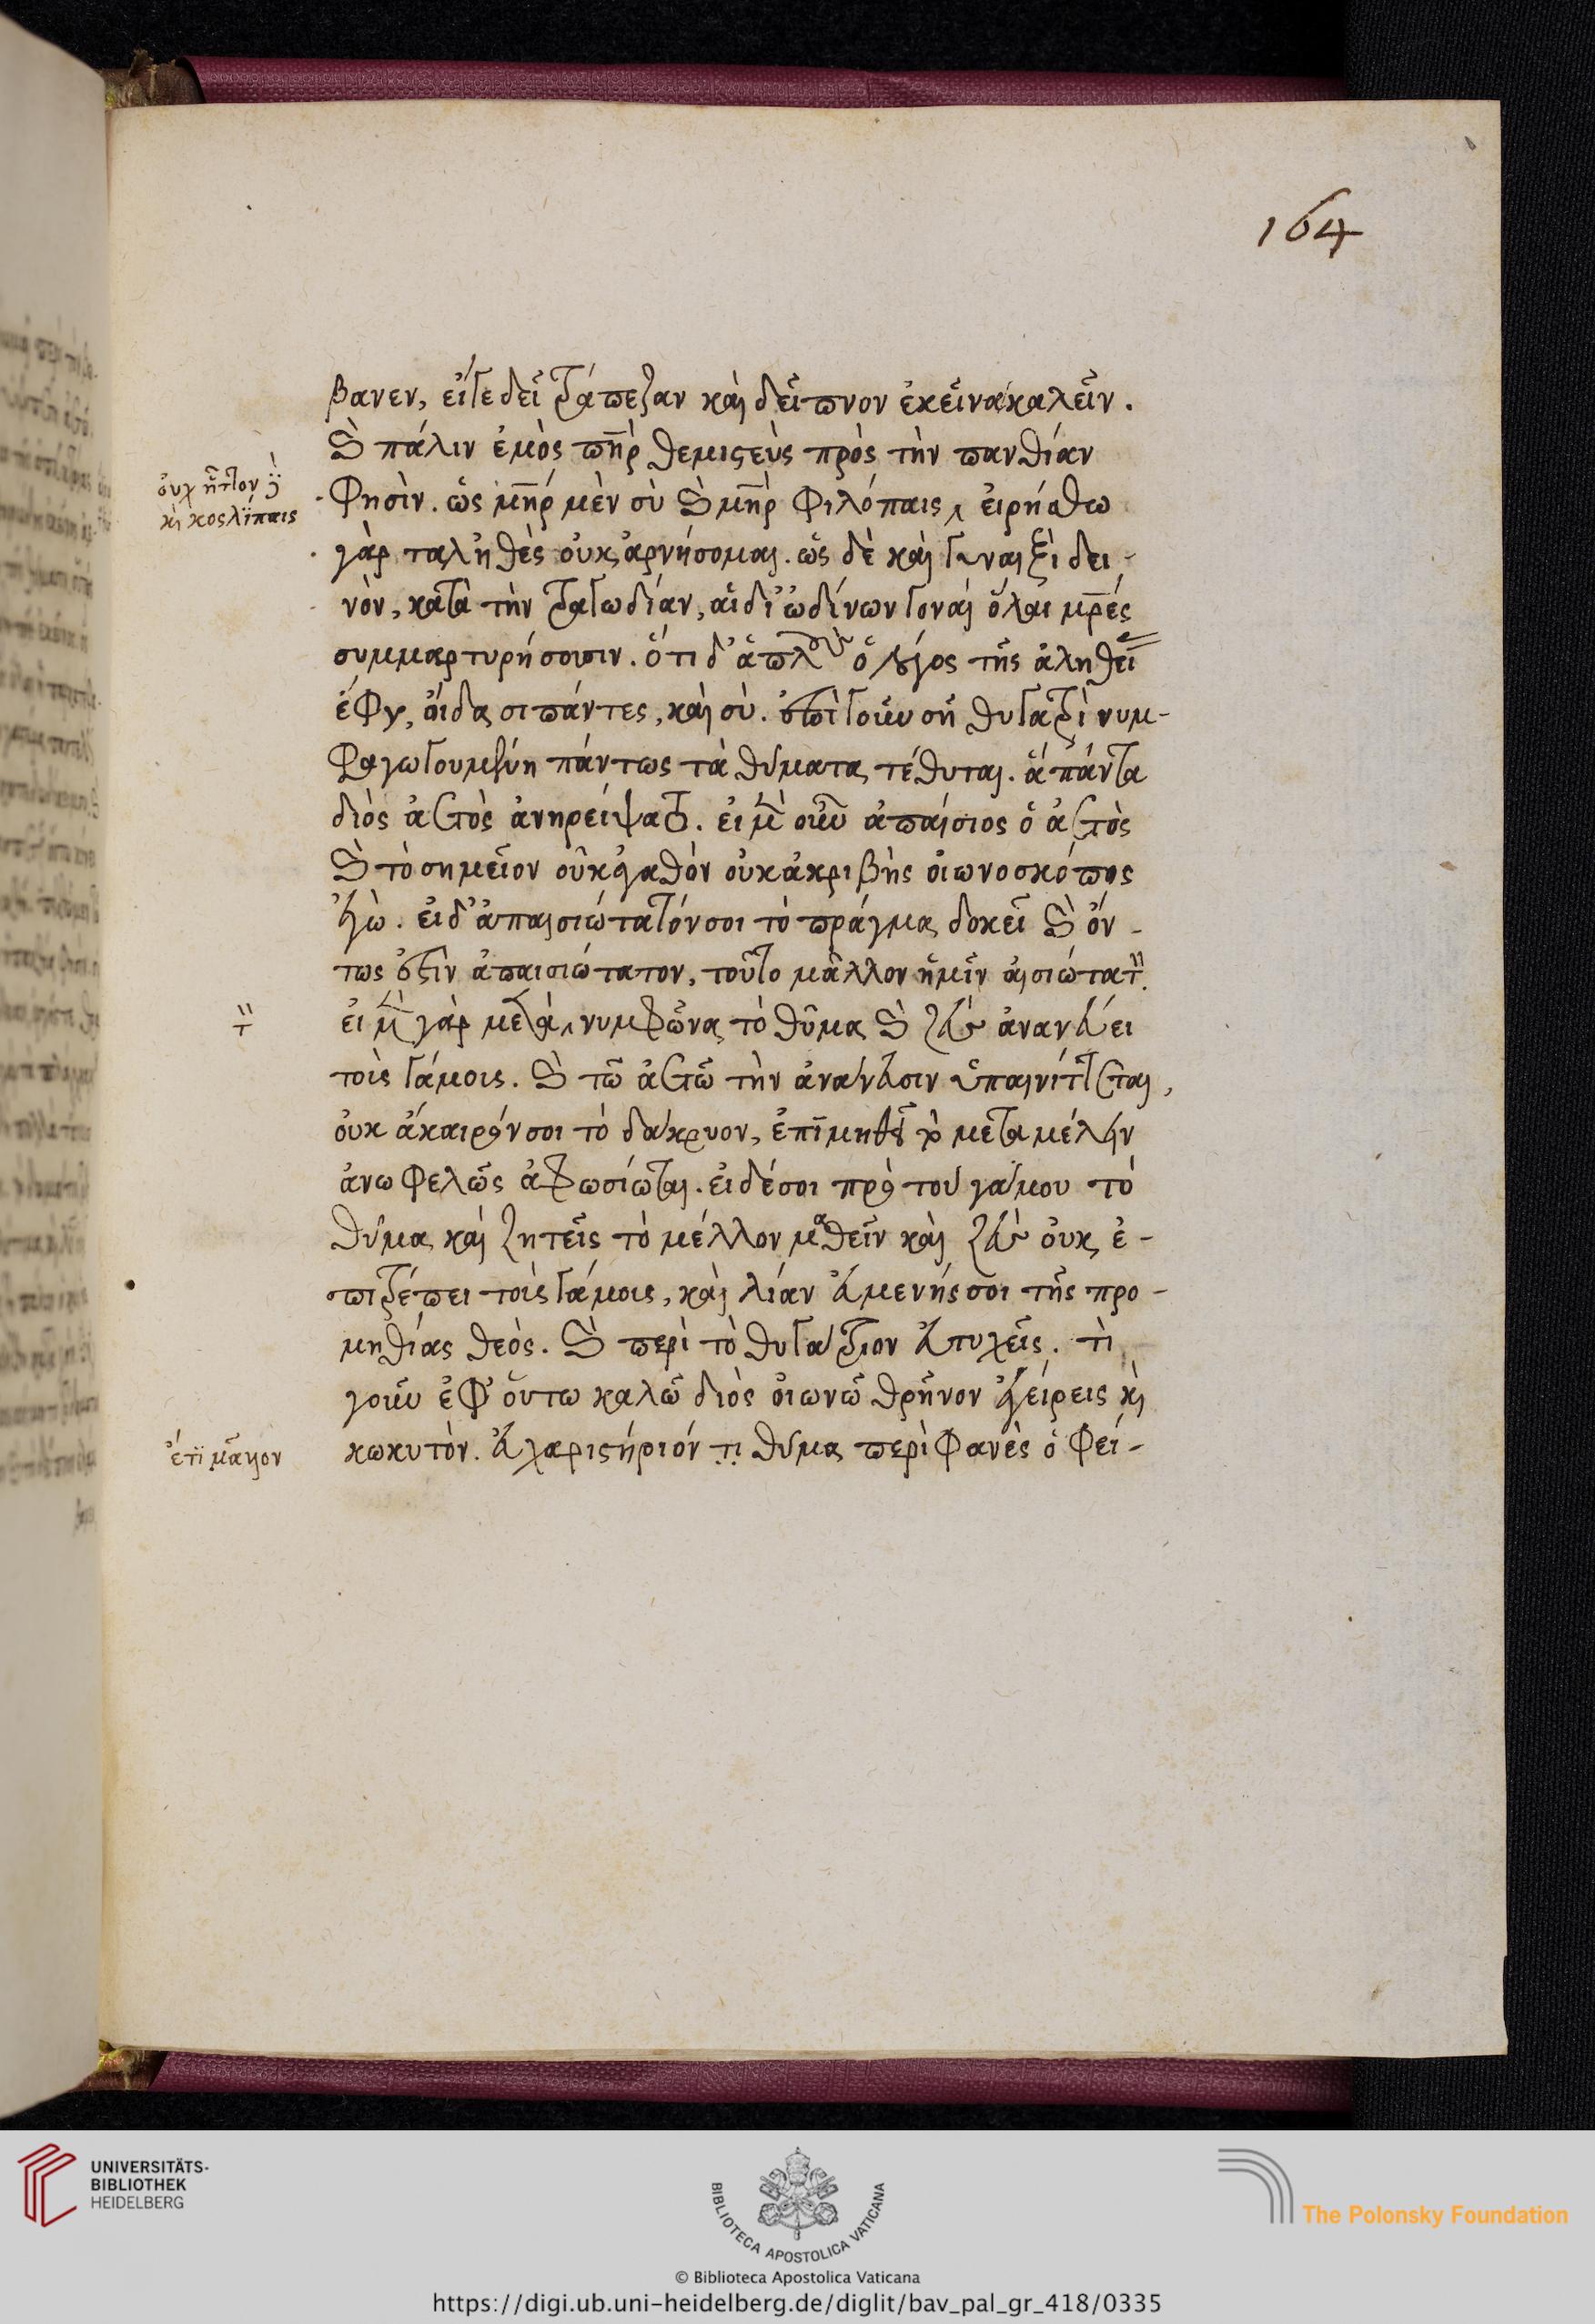 164
βανεν, εἴγε δεῖ τράπεζαν καὶ δεῖπνον ἐκεῖνα καλεῖν.
καὶ πάλιν ἐμὸς πηρ θεμιστεὺς πρὸς τὴν πανθίαν
οὐχ ἧττον
φησὶν. ὡς μηρ μὲν σὺ καὶ μηρ φιλόπαις, εἰρήσθω
γὰρ ταληθὲς οὐκ ἀρνήσομαι. ὡς δὲ καὶ γυναιξὶ δει-
νὸν, κατὰ τὴν τραγωδίαν, αἱ δι' ὠδίνων γοναὶ ὅλαι μρες
συμμαρτυρήσουσιν. ὅτι δ' ἁπλοῦς ὁ λόγος τῆς ἀληθεί
ἔφυ, οἴδασι πάντες, καὶ σὺ. ἐπὶ γοῦν σῇ θυγατρὶ νυμ-
φαγωγουμένῃ πάντως τὰ θύματα τέθυται. ἃ πάντα
διὸς ἀετὸς ἀνηρείψατο. εἰ μὲν οὖν ἀπαίσιος ὁ ἀετὸς
καὶ τὸ σημεῖον οὐκ ἀγαθὸν οὐκ ἀκριβὴς οἰωνοσκόπος
ἐγὼ. εἰ δ' ἀπαισιώτατόν σοι τὸ πρᾶγμα δοκεῖ καὶ ὄν-
τως ἐστὶν ἀπαισιώτατον, τοῦτο μᾶλλον ἡμῖν αἰσιώτατ.
εἰ μὲν γὰρ μετὰ νυμφῶνα τὸ θῦμα καὶ ζεὺς ἀνανεύει
τοῖς γάμοις. καὶ τῷ ἀετῷ τὴν ἀνάνευσιν ὑπαινίττεται,
οὐκ ἄκαιρόν σοι τὸ δάκρυον, ἐπιμηθεῖ γὰρ μεταμέλειν
ἀνωφελῶς ἀφωσίωται. εἰ δέ σοι πρὸ τοῦ γάμου τὸ
θῦμα καὶ ζητεῖς τὸ μέλλον μαθεῖν καὶ ζεὺς οὐκ ἐ-
πιτρέπει τοῖς γάμοις, καὶ λίαν εὐμενής σοι τῆς προ-
μηθίας θεὸς. καὶ περὶ τὸ θυγάτριον εὐτυχεῖς. τί
γοῦν ἐφ' οὕτω καλῷ διὸς οἰωνῷ θρῆνον ἐγείρεις καὶ
κωκυτὸν. εὐχαριστήριόν τι θῦμα περιφανὲς ὀφεί-
UNIVERSITÄTS-
BIBLIOTHEK
HEIDELBERG
BIBLIOTECA APOSTOLICA VATICANA
The Polonsky Foundation
© Biblioteca Apostolica Vaticana
https://digi.ub.uni-heidelberg.de/diglit/bav_pal_gr_418/0335